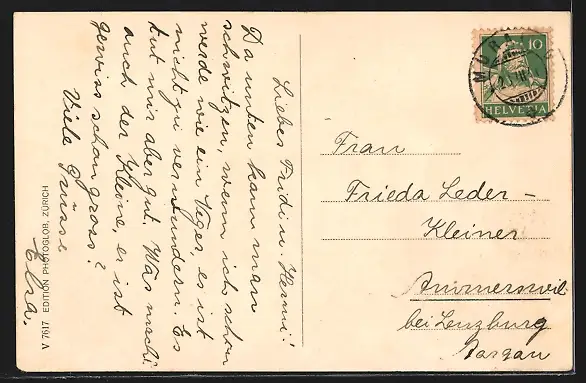 Liebes Fridi u. Hermi!
Da unten kann man
schwitzen, wenn ich schon
werde wie ein Neger, es ist
nicht zu verwundern. Es
tut mir aber gut. Was macht
auch der Kleine, es ist
gewiss schon gross?
Viele Grüsse
Elsa.
V 7617 EDITION PHOTOGLOB, ZÜRICH
10
HELVETIA
Frau
Frieda Leder-
Kleiner
Ammerswil
bei Lenzburg
Aargau